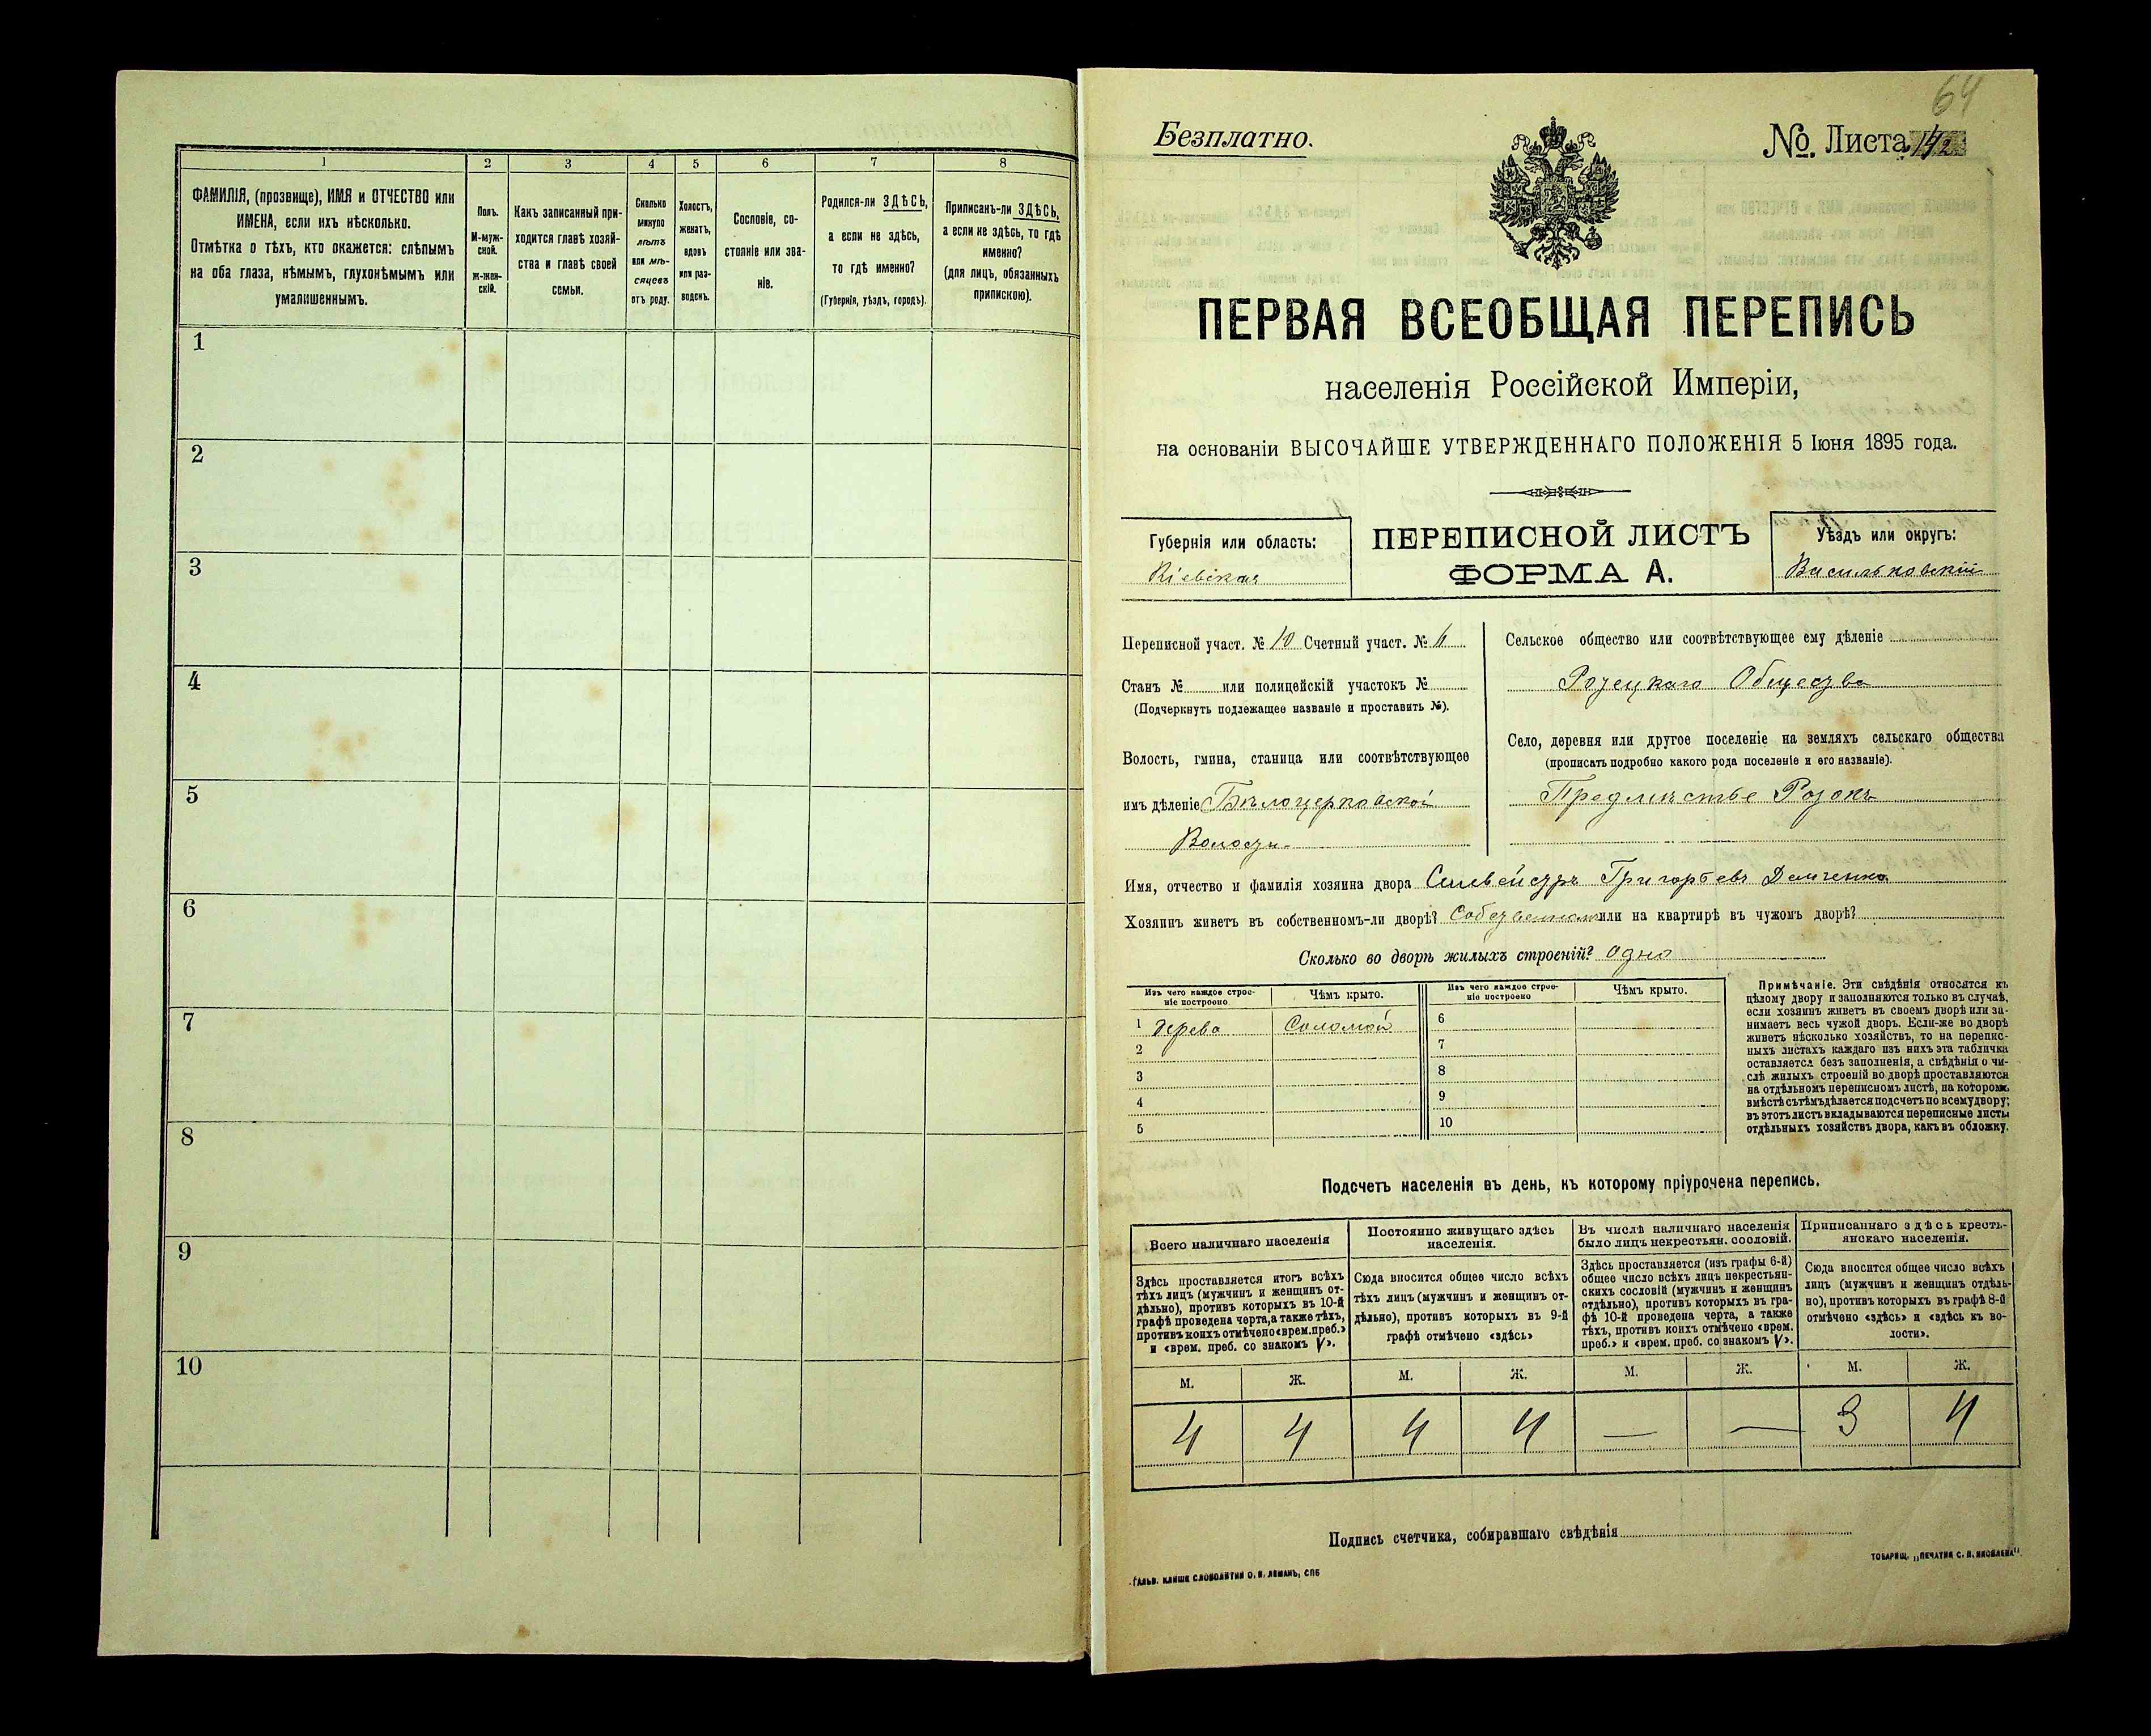 1
2
3
4
5
6
7
8
ФАМИЛІЯ, (прозвище), ИМЯ и ОТЧЕСТВО или
ИМЕНА, если ихъ нѣсколько.
Отмѣтка о тѣхъ, кто окажется: слѣпымъ
на оба глаза, нѣмымъ, глухонѣмымъ или
умалишеннымъ.
Полъ.
М-муж-
ской.
Ж-жен-
скій.
Какъ записанный при-
ходится главѣ хозяй-
ства и главѣ своей
семьи.
Сколько
минуло
лѣтъ
или мѣ-
сяцевъ
отъ роду.
Холостъ,
женатъ,
вдовъ
или раз-
веденъ.
Сословіе, со-
стояніе или зва-
ніе.
Родился-ли ЗДѢСЬ,
а если не здѣсь,
то гдѣ именно?
(Губернія, уѣздъ, городъ).
Приписанъ-ли ЗДѢСЬ,
а если не здѣсь, то гдѣ
именно?
(для лицъ, обязанныхъ
припискою).
1
2
3
4
5
6
7
8
9
10
64
Безплатно.
№. Листа
ПЕРВАЯ ВСЕОБЩАЯ ПЕРЕПИСЬ
населенія Россійской Имперіи,
на основаніи ВЫСОЧАЙШЕ УТВЕРЖДЕННАГО ПОЛОЖЕНІЯ 5 Іюня 1895 года.
Губернія или область:
Кіевская
ПЕРЕПИСНОЙ ЛИСТЪ
ФОРМА А.
Уѣздъ или округъ:
Васильковскій
Переписной участ. № 10 Счетный участ. №
Станъ № или полицейскій участокъ №
(Подчеркнуть подлежащее названіе и проставить №).
Волость, гмина, станица или соотвѣтствующее
имъ дѣленіе Бѣлоцерковской
Волости
Сельское общество или соотвѣтствующее ему дѣленіе
Ротецкаго Общества
Село, деревня или другое поселеніе на земляхъ сельскаго общества
(прописать подробно какого рода поселеніе и его названіе).
Предмѣстье Ротокъ
Имя, отчество и фамилія хозяина двора Сильвейстръ Григорьевъ Демченко
Хозяинъ живетъ въ собственномъ-ли дворѣ? Собственномъ или на квартирѣ въ чужомъ дворѣ?
Сколько во дворѣ жилыхъ строеній? одно
Изъ чего каждое строе-
ніе построено
Чѣмъ крыто.
Изъ чего каждое строе-
ніе построено
Чѣмъ крыто.
1 дерева Соломой
2
3
4
5
6
7
8
9
10
Примѣчаніе. Эти свѣдѣнія относятся къ
цѣлому двору и заполняются только въ случаѣ,
если хозяинъ живетъ въ своемъ дворѣ или за-
нимаетъ весь чужой дворъ. Если-же во дворѣ
живетъ нѣсколько хозяйствъ, то на перепис-
ныхъ листахъ каждаго изъ нихъ эта табличка
оставляется безъ заполненія, а свѣдѣнія о чи-
слѣ жилыхъ строеній во дворѣ проставляются
на отдѣльномъ переписномъ листѣ, на которомъ
вмѣстѣ съ тѣмъ дѣлается подсчетъ по всему двору;
въ этотъ листъ вкладываются переписные листы
отдѣльныхъ хозяйствъ двора, какъ въ обложку.
Подсчетъ населенія въ день, къ которому пріурочена перепись.
Всего наличнаго населенія
Здѣсь проставляется итогъ всѣхъ
тѣхъ лицъ (мужчинъ и женщинъ от-
дѣльно), противъ которыхъ въ 10-й
графѣ проведена черта, а также тѣхъ,
противъ коихъ отмѣчено «врем. преб.»
и «врем. преб. со знакомъ V».
Постоянно живущаго здѣсь
населенія.
Сюда вносится общее число всѣхъ
тѣхъ лицъ (мужчинъ и женщинъ от-
дѣльно), противъ которыхъ въ 9-й
графѣ отмѣчено «здѣсь»
Въ числѣ наличнаго населенія
было лицъ некрестьян. сословій.
Здѣсь проставляется (изъ графы 6-й)
общее число всѣхъ лицъ некрестьян-
скихъ сословій (мужчинъ и женщинъ
отдѣльно), противъ которыхъ въ гра-
фѣ 10-й проведена черта, а также
тѣхъ, противъ коихъ отмѣчено «врем.
преб.» и «врем. преб. со знакомъ V».
Приписаннаго здѣсь кресть-
янскаго населенія.
Сюда вносится общее число всѣхъ
лицъ (мужчинъ и женщинъ отдѣль-
но), противъ которыхъ въ графѣ 8-й
отмѣчено «здѣсь» и «здѣсь къ во-
лости».
М. Ж. М. Ж. М. Ж. М. Ж.
4 4 4 4 — — 3 4
Подпись счетчика, собиравшаго свѣдѣнія
ГАЛЬВ. КЛИШЕ СЛОВОЛИТНИ О. И. ЛЕМАНЪ, СПБ
ТОВАРИЩ. „ПЕЧАТНЯ С. П. ЯКОВЛЕВА".